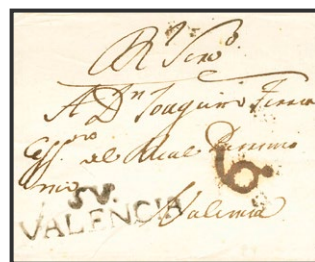 Rl Servo
A Dn Joaquin Ferrer
Essno del Real Patrimo
nio
6
SV.
VALENCIA
Valencia